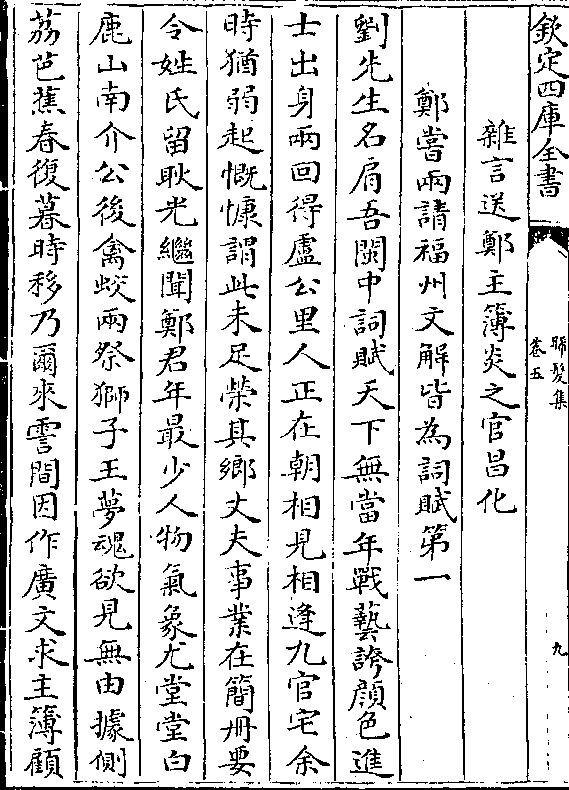 欽定四庫全書
晞髮集
卷五
九
雜言送鄭主簿炎之官昌化
鄭嘗兩請福州文解皆為詞賦第一
劉先生名肩吾閩中詞賦天下無當年戰藝誇顔色進
士出身兩回得盧公里人正在朝相見相逢九官宅余
時猶弱起慨慷謂此未足榮其鄉丈夫事業在簡冊要
令姓氏留耿光繼聞鄭君年最少人物氣象尤堂堂白
鹿山南介公後禽蛟兩祭獅子王夢魂欲見無由據側
荔芭蕉春復暮時移乃爾來霅間因作廣文求主簿顧